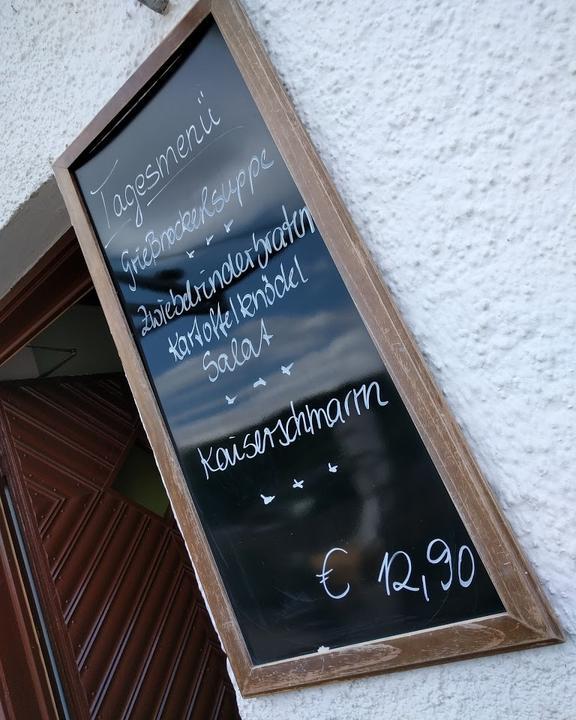 Tagesmenü
Grießnockerlsuppe
Zwiebelrinderbraten
Kartoffelknödel
Salat
Kaiserschmarrn
€ 12,90